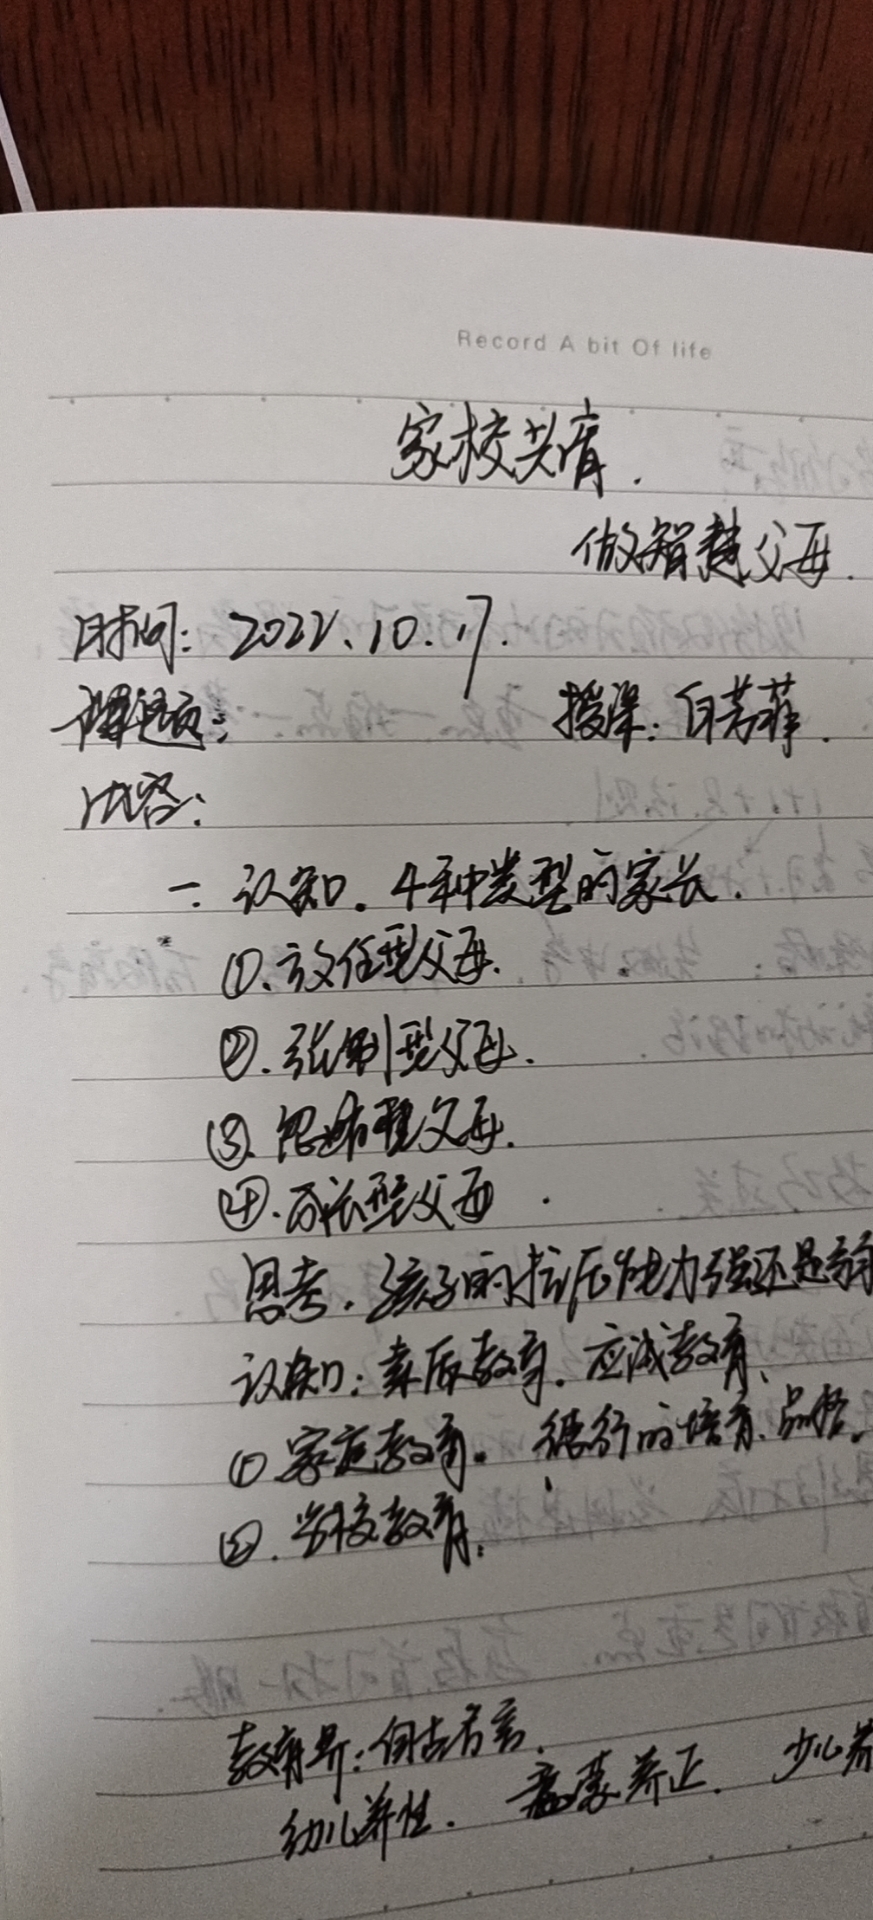 Record A bit Of life
家校共育.
做智慧父母.
时间: 2022.10.17.
课题: 授课: 白芳菲.
内容:
一. 认知. 4种类型的家长.
①.放任型父母.
②.强制型父母.
③.忽视型父母.
④.民主型父母.
思考. 孩子的抗压能力强还是弱
认知: 素质教育. 应试教育.
① 家庭教育. 德行的培育、品格.
②. 学校教育.
教育界: 自古名言.
幼儿养性. 童蒙养正. 少儿养